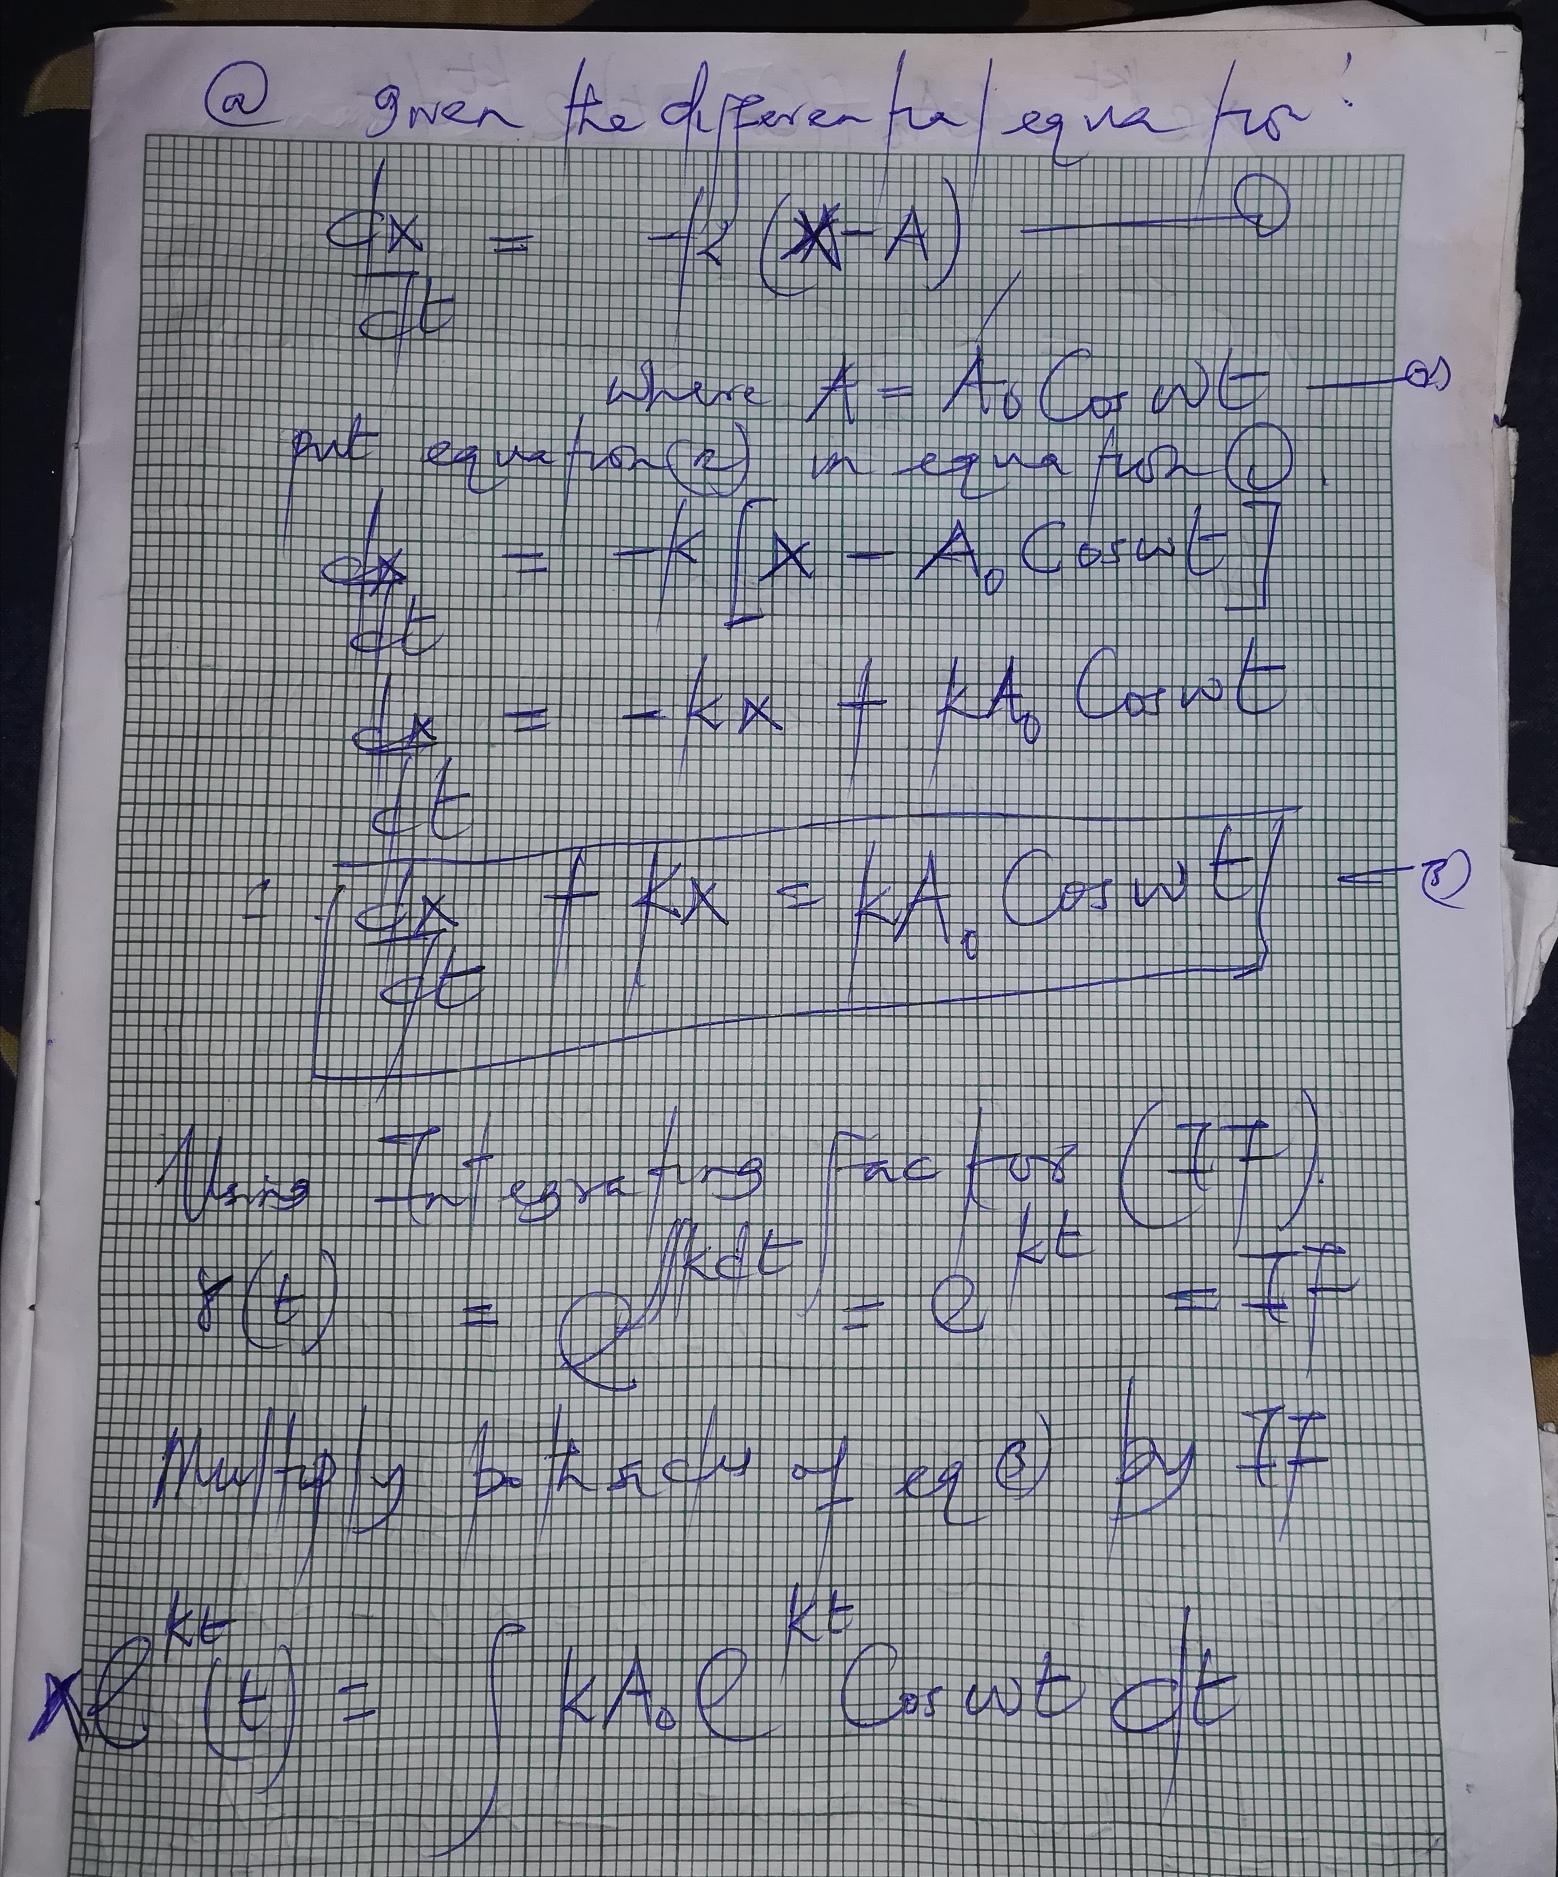 (a) given the differential equation:
dx/dt = -k (X - A) — (1)
where A = A₀ Cos wt — (2)
put equation (2) in equation (1).
dx/dt = -k [x - A₀ Cos wt]
dx/dt = -kx + kA₀ Cos wt
dx/dt + kx = kA₀ Cos wt — (3)
Using Integrating factor (IF).
γ(t) = e^∫kdt = e^kt = IF
Multiply both sides of eq (3) by IF
xe^kt (t) = ∫ kA₀ e^kt Cos wt dt